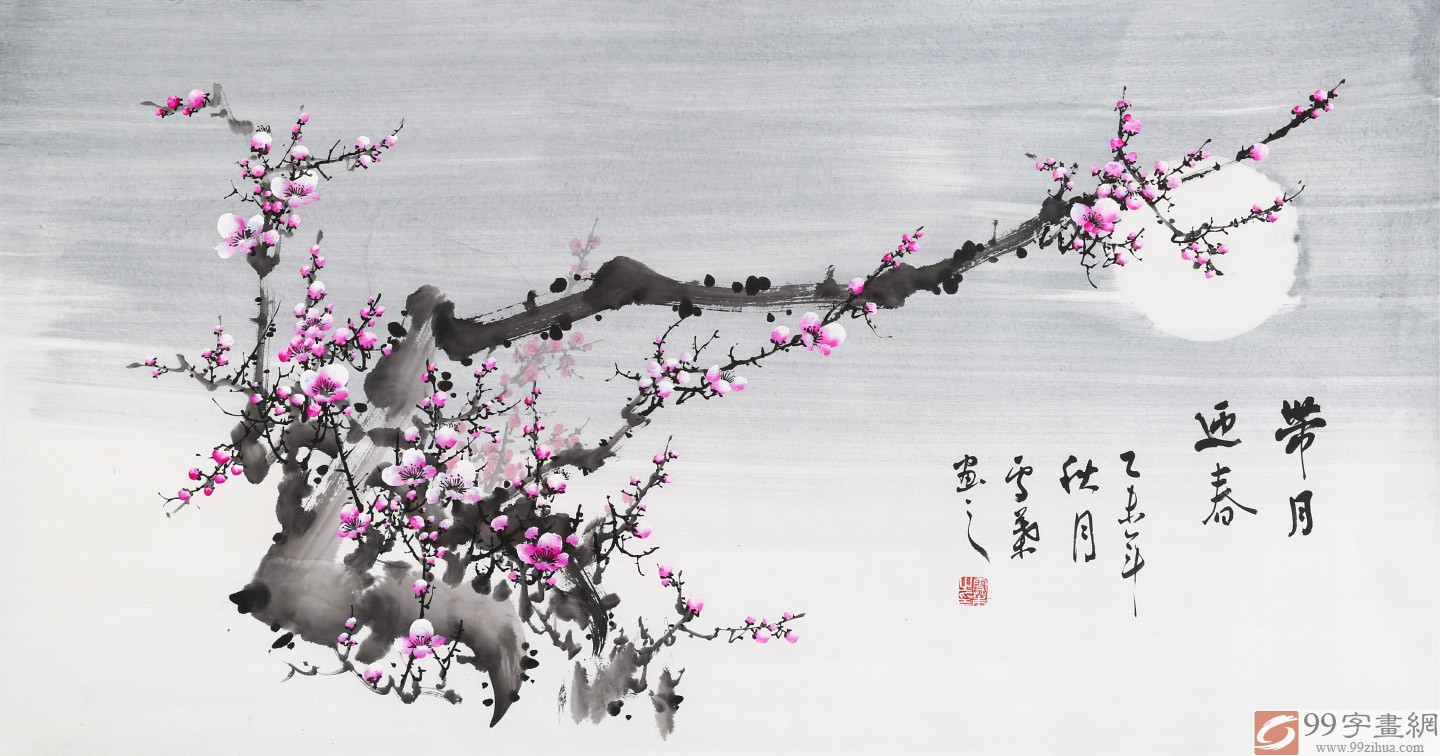 帶月
迎春
乙未年
秋月
雪
画之
99字畫網
www.99zihua.com